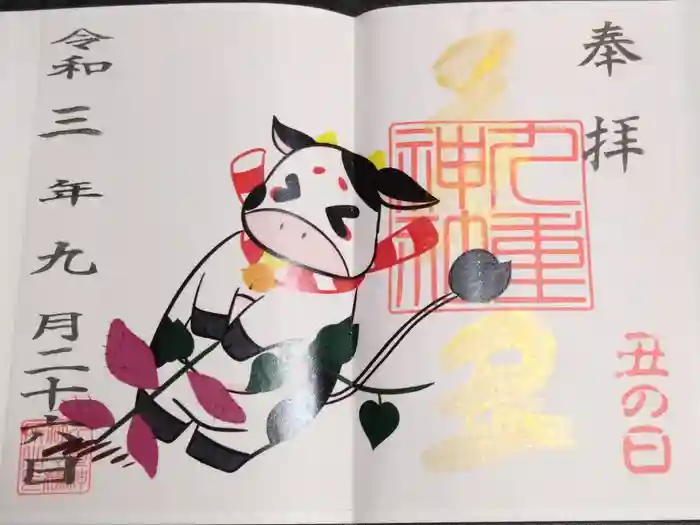 奉拝
九重神社
丑
丑の日
令和三年九月二十六日